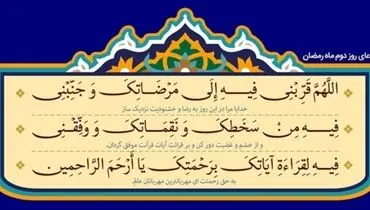 عای روز دوم ماه رمضان
اللَّهُمَّ قَرِّبْنِی فِیهِ إِلَی مَرْضَاتِکَ وَ جَنِّبْنِی
خدایا مرا در این روز به رضا و خشنودیت نزدیک ساز
فِیهِ مِنْ سَخَطِکَ وَ نَقِمَاتِکَ وَ وَفِّقْنِی
و از خشم و غضبت دور کن و بر قرائت آیات قرآنت موفق گردان،
فِیهِ لِقِرَاءَةِ آیَاتِکَ بِرَحْمَتِکَ یَا أَرْحَمَ الرَّاحِمِینَ
به حق رحمتت ای مهربانترین مهربانان عالم.